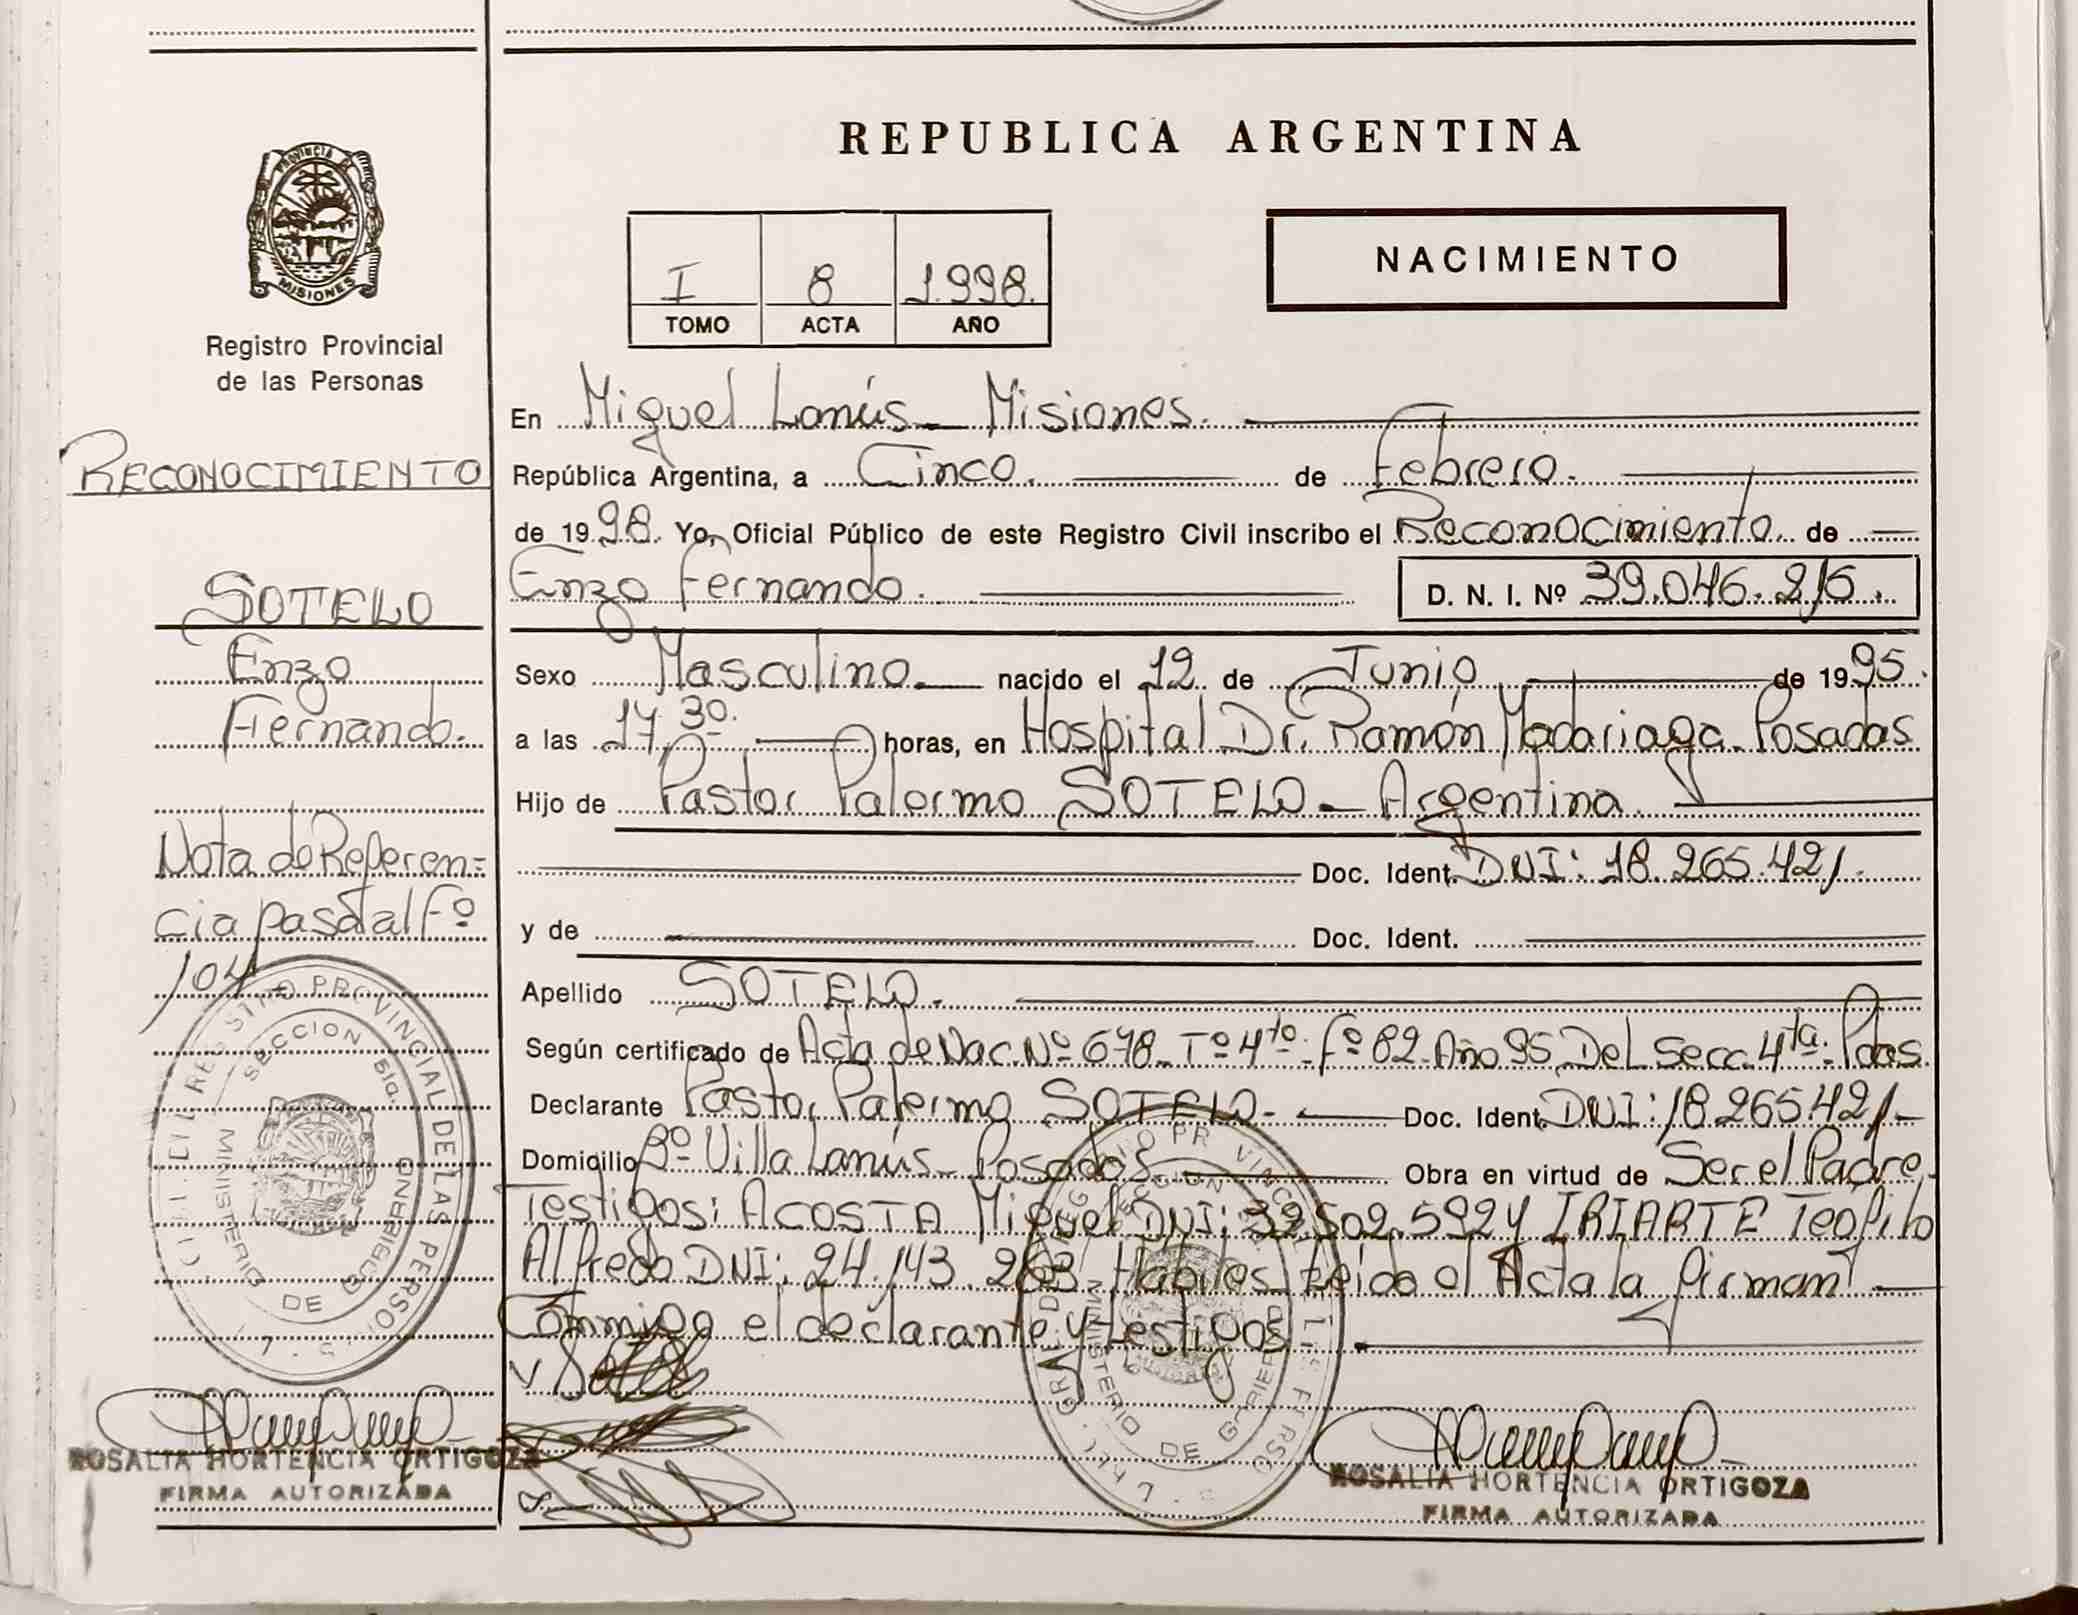 REPUBLICA ARGENTINA
NACIMIENTO
I 8 1.998.
TOMO ACTA AÑO
PROVINCIA DE
MISIONES
Registro Provincial
de las Personas
RECONOCIMIENTO
SOTELO
Enzo
Fernando.
Nota de Referen=
cia pasa al Fº
104
En Miguel Lanús - Misiones.
República Argentina, a Cinco. de Febrero.
de 1998. Yo, Oficial Público de este Registro Civil inscribo el Reconocimiento de
Enzo Fernando. D. N. I. Nº 39.046.215.
Sexo Masculino. nacido el 12 de Junio de 1995.
a las 17,30. horas, en Hospital Dr. Ramón Madariaga. Posadas
Hijo de Pastor Palermo SOTELO - Argentina.
Doc. Ident. DNI: 18.265.421.
y de Doc. Ident.
Apellido SOTELO.
Según certificado de Acta de Nac. Nº 678 - Tº 4to. Fº 82 Año 95 Del. Secc. 4ta. Pdas.
Declarante Pastor Palermo SOTELO - Doc. Ident. DNI: 18.265.421.-
Domicilio Bº Villa Lanús - Posadas Obra en virtud de Ser el Padre.
Testigos: ACOSTA Miguel DNI: .502.592 Y IRIARTE Teófilo
Alfredo DNI: 24.143.263 Habiles leido el Acta la firman
Commigo el declarante y testigos
REGISTRO PROVINCIAL DE LAS PERSONAS
SECCION 5ta.
MINISTERIO DE GOBIERNO
ROSALIA HORTENCIA ORTIGOZA
FIRMA AUTORIZADA
ROSALIA HORTENCIA ORTIGOZA
FIRMA AUTORIZADA